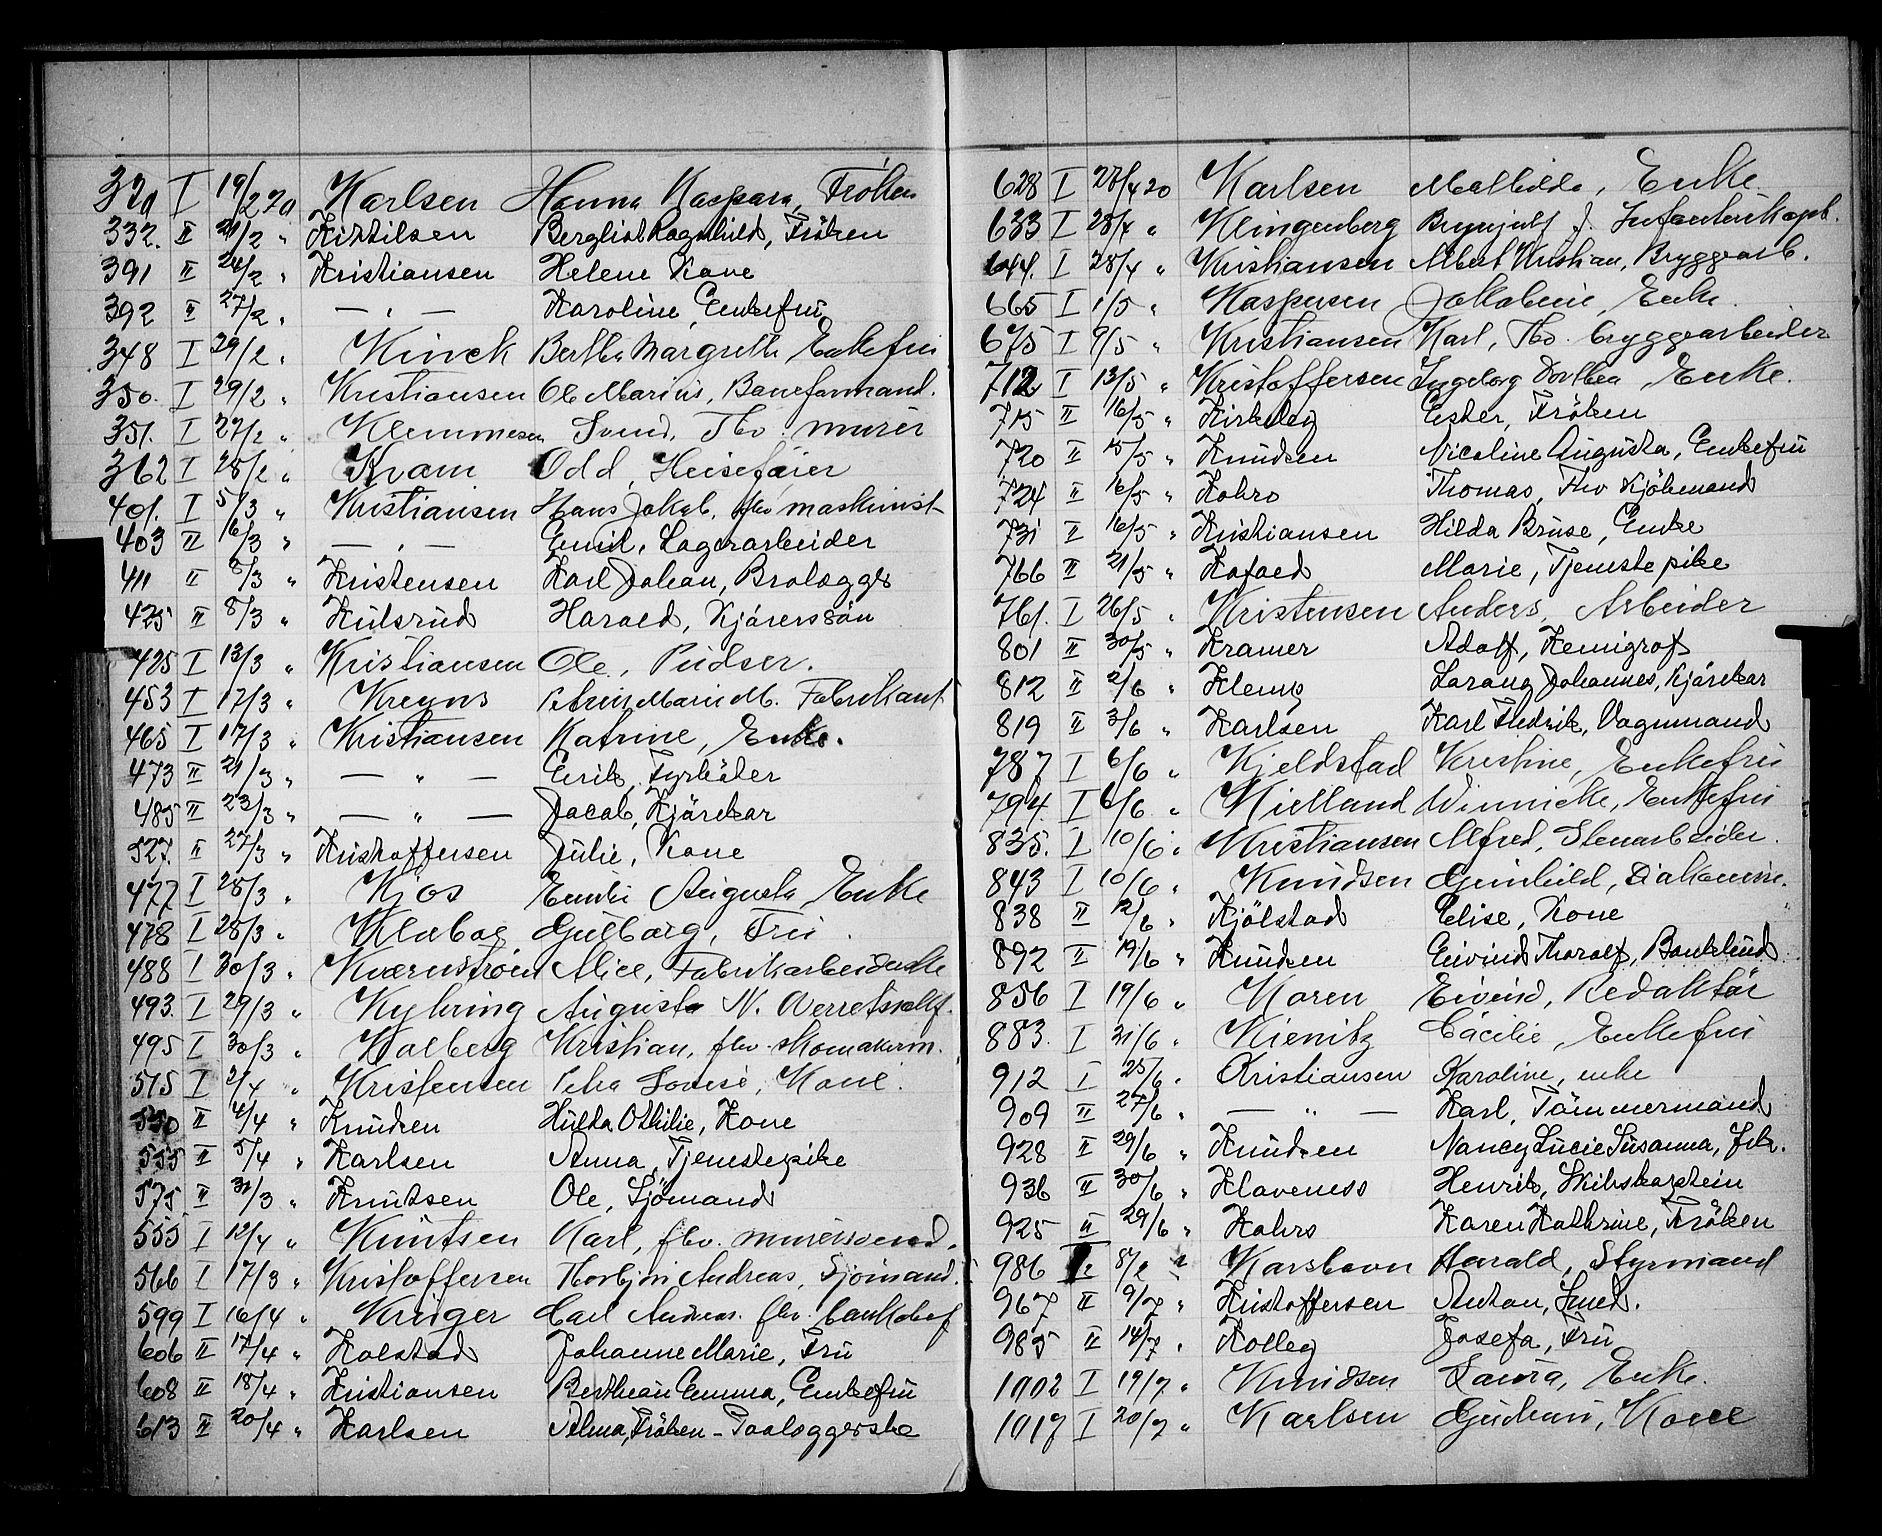 320 I 19/2 20 Karlsen Hanna Kaspara, Fröken
332. II 21/2 " Kittilsen Bergliot Ragnhild, Fröken
391 II 24/2 " Kristiansen Helene Kone
392 II 27/2 " — " — Karoline, Enkefru
348 I 29/2 " Kinck Bertha Margrethe Enkefru
350. I 29/2 " Kristiansen Ole Marius, Baneformand.
351. I 27/2 " Klemmesen Svend, Fhv. murer
362 I 28/2 " Kvam Odd, Heisefører
401. I 5/3 " Kristiansen Hans Jakob, fhv maskinist
403 II 16/3 " — " — Emil, Lagerarbeider
411 II 8/3 " Kristensen Karl Johan, Brolægger
425 II 8/3 " Kulsrud Harald, Kjörerssön
425 I 13/3 " Kristiansen Ole, Pudser.
453 I 17/3 " Kreyns Marie M. Fabrikant
465 I 17/3 " Kristiansen Katrine, Enke.
473 II 21/3 " — " — Erik, Fyrböter
485 II 23/3 " — " — Jacob, Kjörekar
527. II 27/3 " Kristoffersen Julie, Kone
477 I 28/3 " Kjos Emilie Augusta Enke
478 I 28/3 " Klæboe Gulborg, Fru.
488 I 30/3 " Kværnstrøm Alice, Fabrikarbeiderske
493. I 29/3 " Kyhring Augusta N. Overretssakf.
495 I 30/3 " Kolberg Kristian, fhv. skomakerm.
515 I 2/4 " Kristensen Petra Lovise, Kone.
550 II 4/4 " Knudsen Hulda Othilie, Kone
555 II 5/4 " Karlsen Anna, Tjenstepike
575 II 31/3 " Knutsen Ole, Sjömand
555 I 12/4 " Knutsen Karl, fhv. murersvend.
566 I 17/3 " Kristoffersen Thorbjørn Andreas, Sjömand.
599 I 16/4 " Krüger Carl Andreas. fhv. bankchef
606 II 17/4 " Kolstad Johanne Marie, Fru
608 II 18/4 " Kristiansen Berthean Emma, Enkefru
613 II 20/4 " Karlsen Alma, Fröken - Paalæggerske
628 I 28/4 20 Karlsen Mathilde, Enke.
633 I 28/4 " Klingenberg Brynjulf J. Infanterikapt.
644. I 28/4 " Kristiansen Albert Kristian, Bryggearb.
665 I 1/5 " Kaspersen Jakobine, Enke.
675 I 9/5 " Kristiansen Karl, Fhv. bryggearbeider
712 I 13/5 " Kristoffersen Ingeborg Dorthea Enke.
715 II 16/5 " Kirkeby Ester, Fröken
720 II 15/5 " Knudsen Nicoline Augusta, Enkefru
724 II 16/5 " Kohrs Thomas, Fhv Kjöbmand
731 II 16/5 " Kristiansen Hilda Bruse, Enke
766 II 21/5 " Kofoed Marie, Tjenstepike
761. I 26/5 " Kristensen Anders, Arbeider
801 II 30/5 " Kramer Adolf, Kemigraf
812 II 2/6 " Klemp Johannes, Kjörekar
819 II 3/6 " Karlsen Karl Fredrik, Vognmand
787 I 6/6 " Kjeldstad Kristine, Enkefru
794. I 6/6 " Kielland Winnicke, Enkefru
835. I 10/6 " Kristiansen Alfred, Stenarbeider.
843 I 10/6 " Knudsen Gunhild, Diakonisse.
838 II 12/6 " Kjölstad Elise, Kone
892 II 19/6 " Knudsen Eivind Thoralf, Bankfuld.
856 I 19/6 " Koren Eivind, Redaktör
883. I 21/6 " Kienitz Cäcilie, Enkefru
912 I 25/6 " Kristiansen Karoline, enke
909 II 27/6 " — " — Karl, Tömmermand
928 II 29/6 " Knudsen Nancy Lucie Susanna, Frk.
936 II 30/6 " Klaveness Henrik, Skibskaptein
925 II 29/6 " Kohrs Karen Kathrine, Fröken
986 I 8/7 " Karsboon Harald, Styrmand
967 II 9/7 " Kristoffersen Anton, Smed.
985 II 14/7 " Kolleg Josefa, Fru
1002 I 19/7 " Knudsen Laura, Enke.
1017 I 20/7 " Karlsen Gudrun, Kone